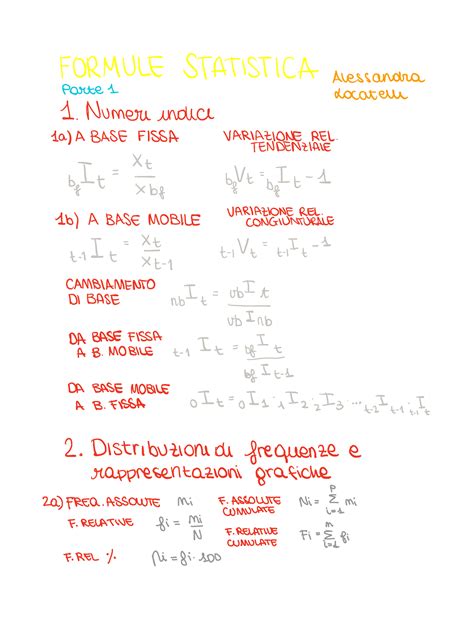 FORMULE STATISTICA Alessandra
Parte 1 Locatelli
1. Numeri indici
1a) A BASE FISSA VARIAZIONE REL. TENDENZIALE
bfIt = Xt / Xbf bfVt = bfIt - 1
1b) A BASE MOBILE VARIAZIONE REL. CONGIUNTURALE
t-1It = Xt / Xt-1 t-1Vt = t-1It - 1
CAMBIAMENTO DI BASE nbIt = vbIt / vbInb
DA BASE FISSA A B. MOBILE t-1It = bfIt / bfIt-1
DA BASE MOBILE A B. FISSA 0It = 0I1 · 1I2 · 2I3 · ... · t-2It-1 · t-1It
2. Distribuzioni di frequenze e
rappresentazioni grafiche
2a) FREQ. ASSOLUTE ni F. ASSOLUTE CUMULATE Ni = Σ ni
F. RELATIVE fi = ni / N F. RELATIVE CUMULATE Fi = Σ fi
F. REL % fi · 100